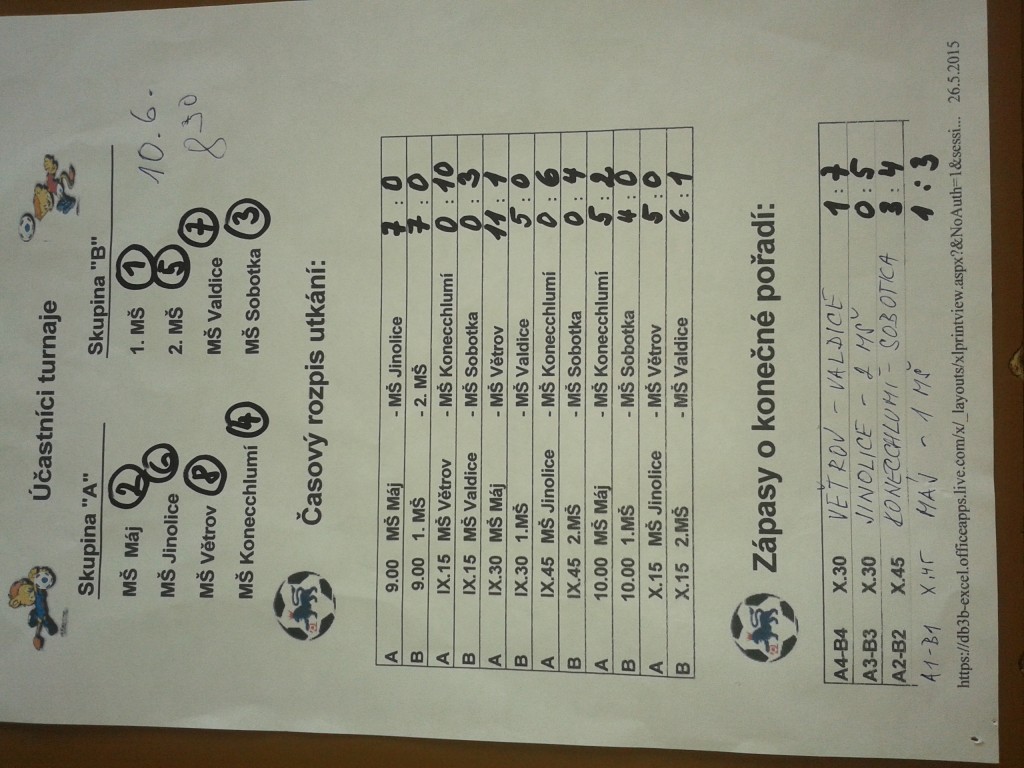 Účastníci turnaje
Skupina "A" Skupina "B"
MŠ Máj 2 1. MŠ 1 10.6.
MŠ Jinolice 6 2. MŠ 5 8 30
MŠ Větrov 8 MŠ Valdice 7
MŠ Konecchlumí 4 MŠ Sobotka 3
Časový rozpis utkání:
A 9.00 MŠ Máj - MŠ Jinolice 7 : 0
B 9.00 1. MŠ - 2. MŠ 7 : 0
A IX.15 MŠ Větrov - MŠ Konecchlumí 0 : 10
B IX.15 MŠ Valdice - MŠ Sobotka 0 : 3
A IX.30 MŠ Máj - MŠ Větrov 11 : 1
B IX.30 1.MŠ - MŠ Valdice 5 : 0
A IX.45 MŠ Jinolice - MŠ Konecchlumí 0 : 6
B IX.45 2.MŠ - MŠ Sobotka 0 : 4
A 10.00 MŠ Máj - MŠ Konecchlumí 5 : 2
B 10.00 1.MŠ - MŠ Sobotka 4 : 0
A X.15 MŠ Jinolice - MŠ Větrov 5 : 0
B X.15 2.MŠ - MŠ Valdice 6 : 1
Zápasy o konečné pořadí:
A4-B4 X.30 VĚTROV - VALDICE 1 : 7
A3-B3 X.30 JINOLICE - 2 MŠ 0 : 5
A2-B2 X.45 KONECCHLUMÍ - SOBOTKA 3 : 4
A1-B1 X.45 MÁJ - 1 MŠ 1 : 3
https://db3b-excel.officeapps.live.com/x/_layouts/xlprintview.aspx?&NoAuth=1&sessi... 26.5.2015